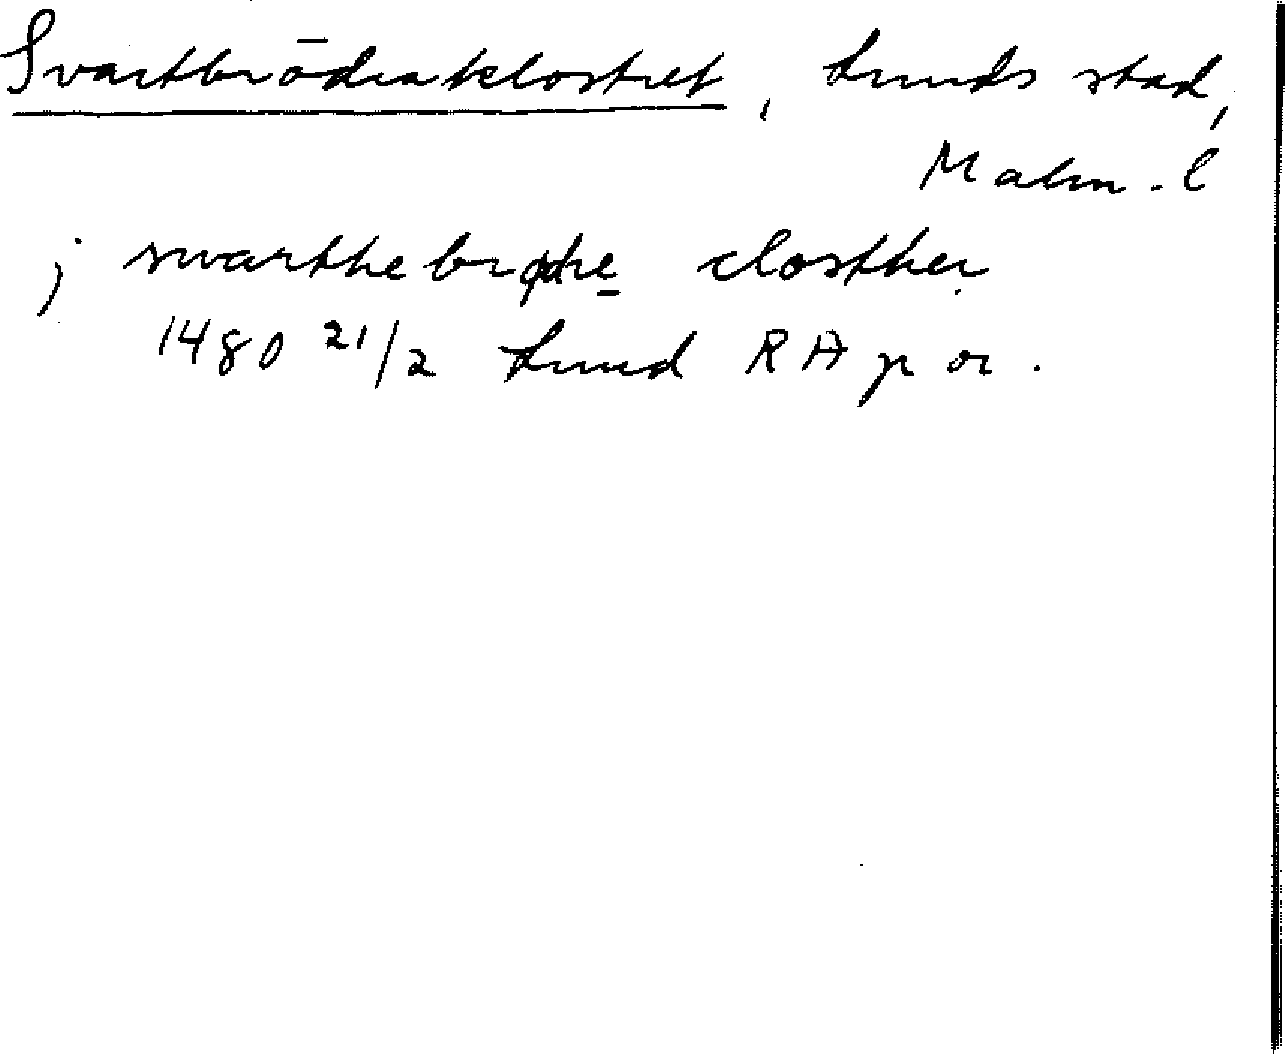 Svartbrödraklostret, Lunds stad,
Malm. l
j swarthebrødre closther
1480 21/2 Lund RA p or.